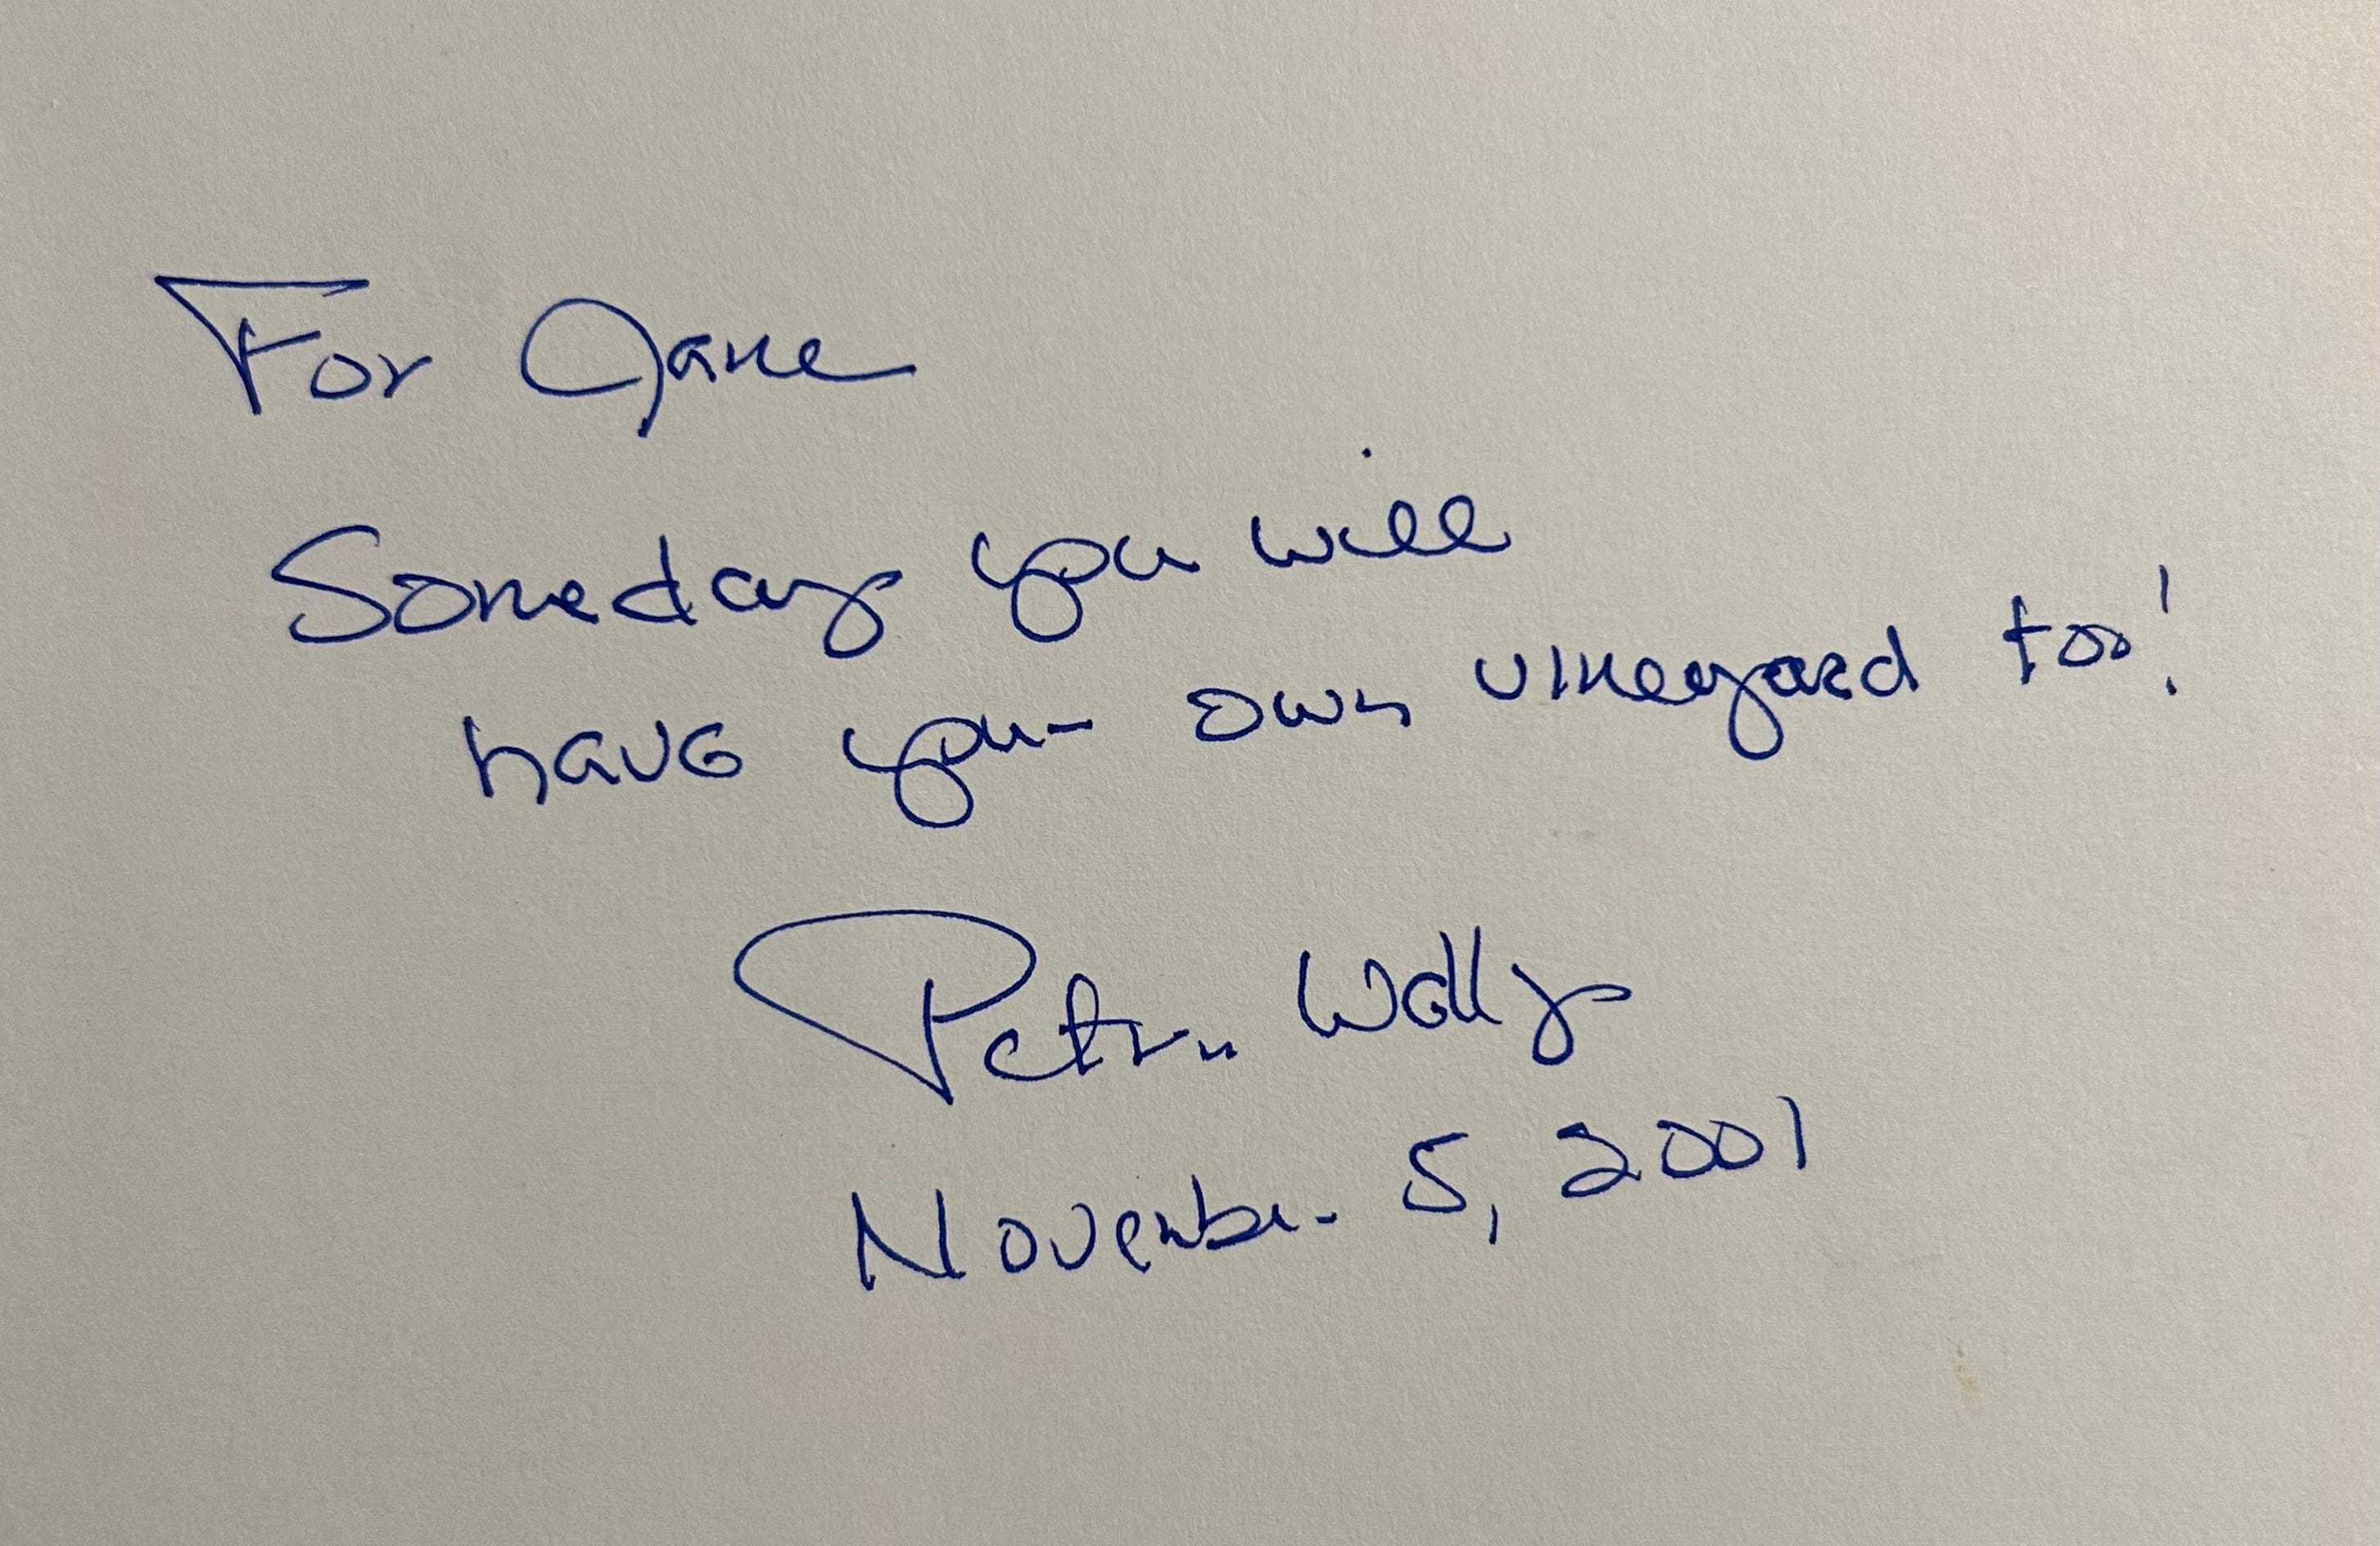 For Jane
Someday you will
have your own vineyard too!
November 5, 2001